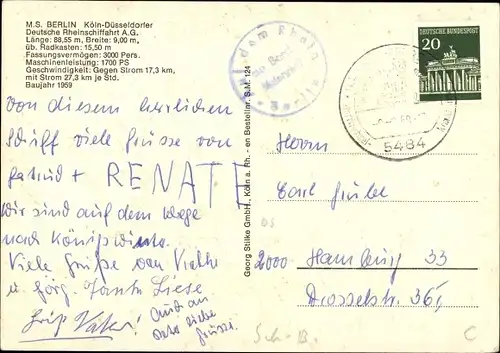 M.S. BERLIN Köln-Düsseldorfer
Deutsche Rheinschiffahrt A.G.
Länge: 88,55 m, Breite: 9,00 m,
üb. Radkasten: 15,50 m
Fassungsvermögen: 3000 Pers.
Maschinenleistung: 1700 PS
Geschwindigkeit: Gegen Strom 17,3 km,
mit Strom 27,3 km je Std.
Baujahr 1959
von diesem herrlichen
Schiff viele Grüsse von
Gertrud + RENATE
Wir sind auf dem Wege
nach Königswinter
Viele Grüße von
u. Jörg. Tante Liese
Auch an
Vater liebe
Grüsse.
Georg Stilke GmbH., Köln a. Rh. - en Bestellnr. S.M. 124
Auf dem Rhein
Berlin
DEUTSCHE BUNDESPOST
20
5484
Herrn
Carl
2000 Hamburg 33
Drosselstr. 36
C